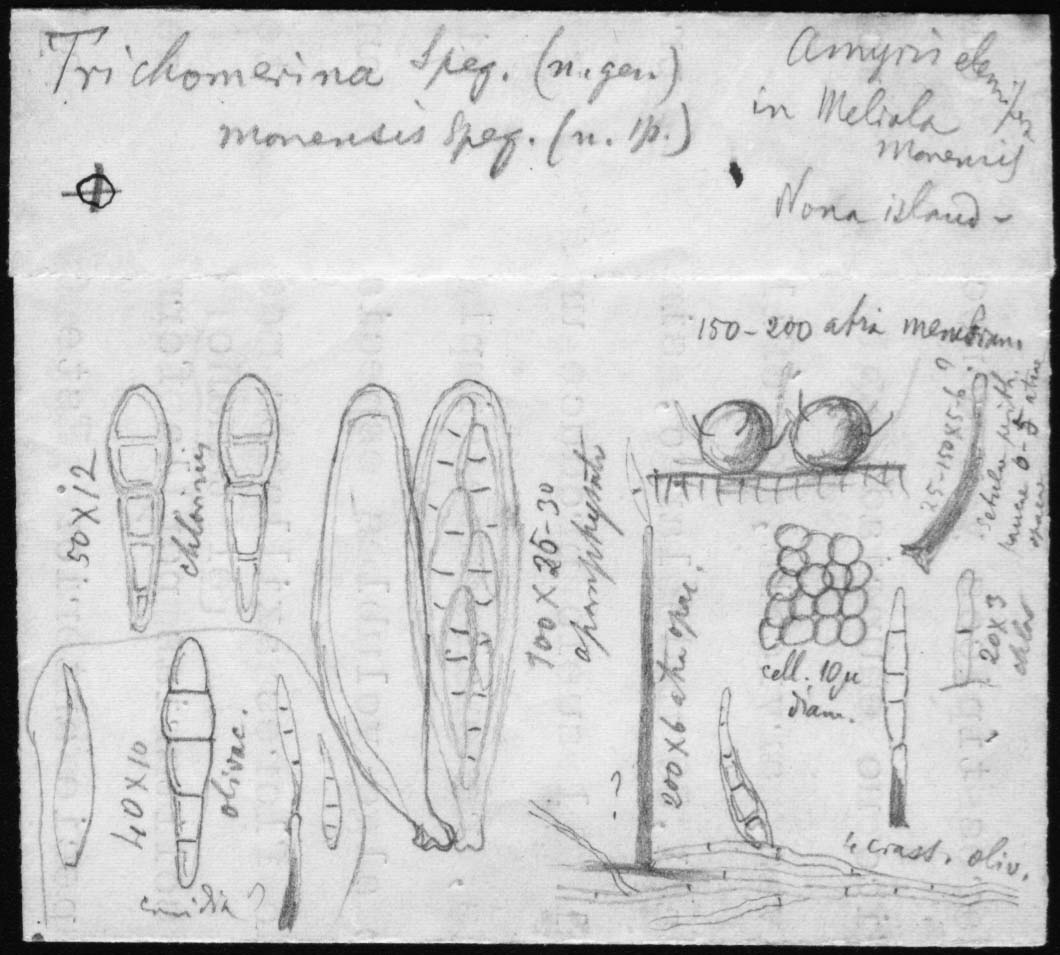 Trichomerina Speg. (n. gen.)
monensis Speg. (n. sp.)
Amyris elemifera
in Meliola
monensis
Mona island -
150-200 atra membran.
50 x 12
chlorinis
100 x 25-30
aparaphysata
25-150 x 5-6 ?
Setulae perith.
0-5
200 x 6 atra opac.
cell. 10 µ
diam.
20 x 3
chlor
40 x 10
olivac.
conidia ?
?
4 crass. oliv.